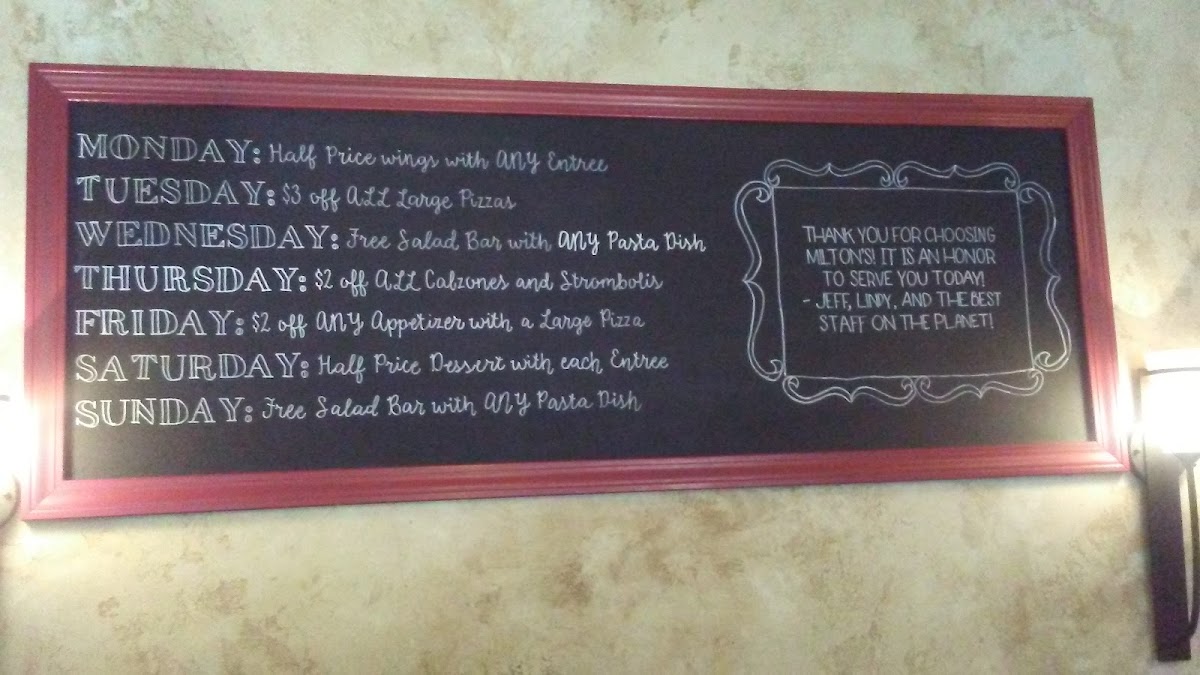 MONDAY: Half Price wings with ANY Entree
TUESDAY: $3 off ALL Large Pizzas
WEDNESDAY: Free Salad Bar with ANY Pasta Dish
THURSDAY: $2 off ALL Calzones and Strombolis
FRIDAY: $2 off ANY Appetizer with a Large Pizza
SATURDAY: Half Price Dessert with each Entree
SUNDAY: Free Salad Bar with ANY Pasta Dish
THANK YOU FOR CHOOSING
MILTON'S! IT IS AN HONOR
TO SERVE YOU TODAY!
- JEFF, LINDY, AND THE BEST
STAFF ON THE PLANET!